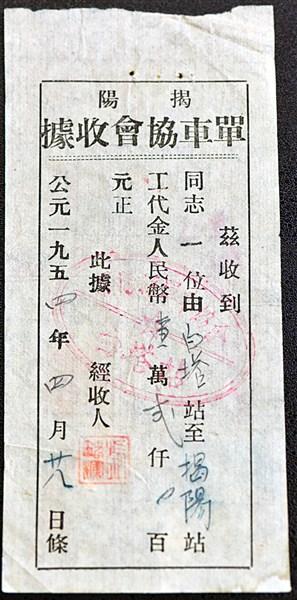 揭陽
單車協會收據
茲收到
同志一位由白塔站至揭陽站
工代金人民幣壹萬弍仟百
元正
此據 經收人
公元一九五四年四月廿八日條